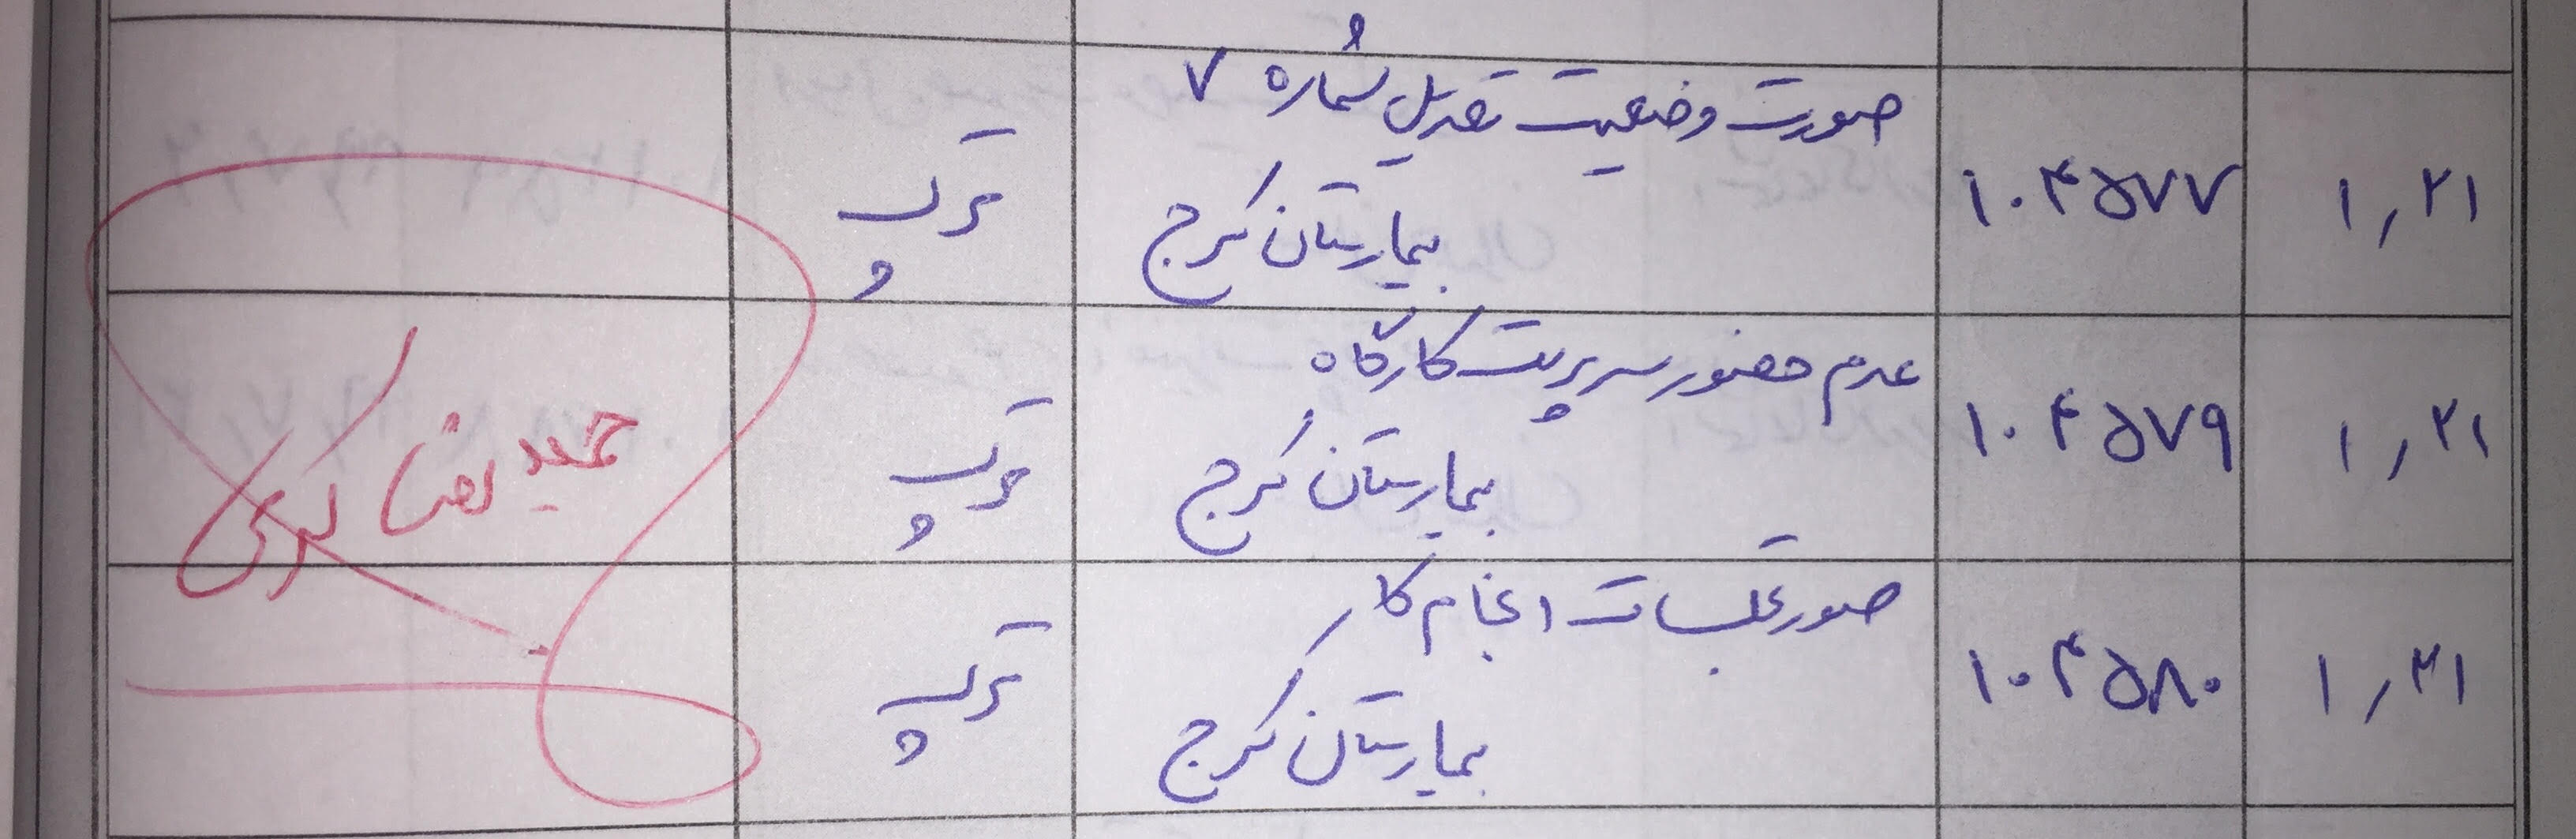 ۱٫۲۱
۱۰۴۵۷۷
صورت وضعیت تعدیل شماره ۷
بیمارستان کرج
۱٫۲۱
۱۰۴۵۷۹
عدم حضور سرپرست کارگاه
بیمارستان کرج
حمید رضا
۱٫۲۱
۱۰۴۵۸۰
صورتجلسات انجام کار
بیمارستان کرج